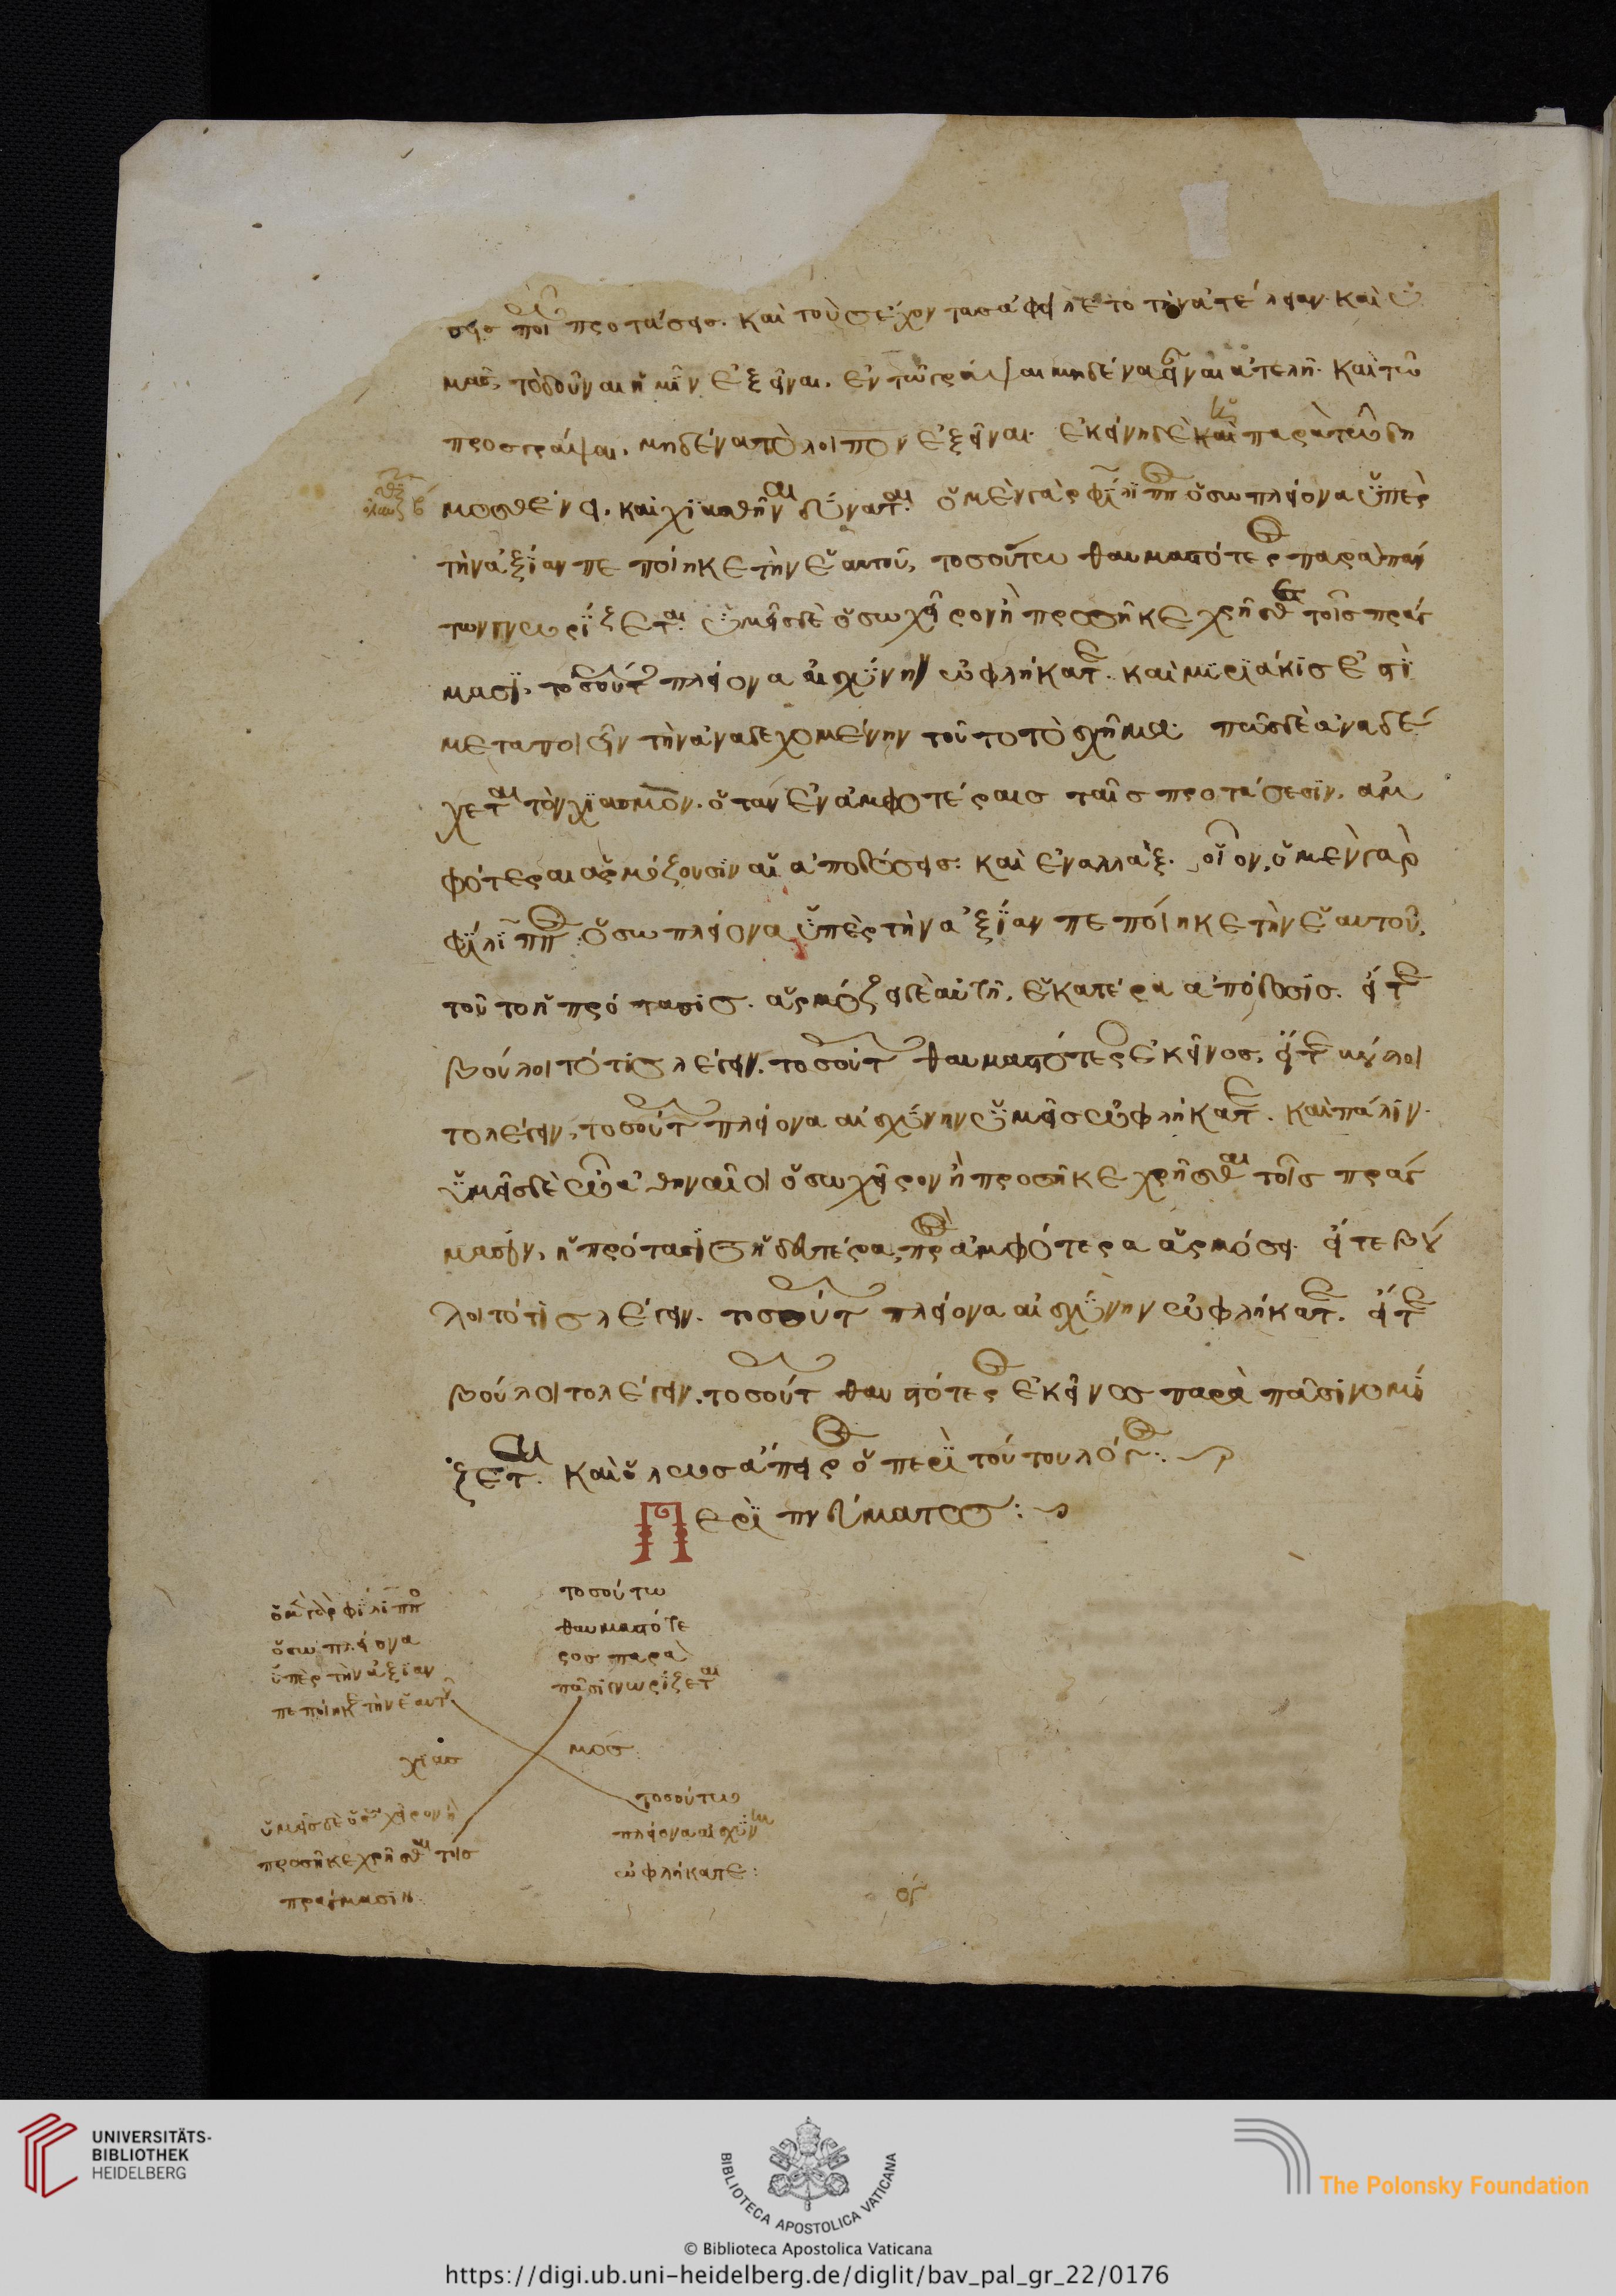 σεις ποι προτάσεις. καὶ τοὺς ἔχοντας ἀφείλετο τὴν ἀτέλειαν. καὶ ὑ
μᾶς, τὸ δοῦναι ἡμῖν ἐξεῖναι. ἐν τῷ γράψαι μηδένα εἶναι ἀτελῆ. καὶ τῷ
προσγράψαι, μηδένα τὸ λοιπὸν ἐξεῖναι. ἐκείνη δὲ καὶ παρὰ τῷ δη
μοσθένει. καὶ χιασθῆναι δύναται. ὁ μὲν γὰρ φίλιππος ὅσω πλείονα ὑπὲρ
τὴν ἀξίαν πεποίηκε τὴν ἑαυτοῦ, τοσούτω θαυμαστότερος παρὰ πάν
των γνωρίζεται. ὑμεῖς δὲ ὅσω χεῖρον ἢ προσῆκε χρῆσθε τοῖς πράγ
μασι, τοσούτω πλείονα αἰσχύνην ὠφλήκατε. καὶ μυριάκις ἐστὶ
μεταποιεῖν τὴν ἀναδεχομένην τοῦτο τὸ σχῆμα. πῶς δὲ ἀναδέ
χεται τὸν χιασμὸν. ὅταν ἐν ἀμφοτέραις ταῖς προτάσεσιν, ἀμ
φότεραι ἁρμόζουσιν αἱ ἀποδόσεις: καὶ ἐναλλὰξ. οἷον, ὁ μὲν γὰρ
φίλιππος ὅσω πλείονα ὑπὲρ τὴν ἀξίαν πεποίηκε τὴν ἑαυτοῦ,
τοῦτο ἡ πρότασις. ἁρμόζει δὲ αὐτῆ, ἑκατέρα ἀπόδοσις. εἴτε
βούλοιτό τις λέγειν. τοσούτω θαυμαστότερος ἐκεῖνος, εἴτε βούλοι
το λέγειν, τοσούτω πλείονα αἰσχύνην ὑμεῖς ὠφλήκατε. καὶ πάλιν.
ὑμεῖς δὲ ὦ ἀθηναῖοι ὅσω χεῖρον ἢ προσῆκε χρῆσθαι τοῖς πράγ
μασιν, ἡ πρότασις ἡ δευτέρα, πρὸς ἀμφότερα ἁρμόσει. εἴτε βού
λοιτό τις λέγειν. τοσούτω πλείονα αἰσχύνην ὠφλήκατε. εἴτε
βούλοιτο λέγειν. τοσούτω θαυμαστότερος ἐκεῖνος παρὰ πᾶσι νομί
ζεται. καὶ ὅλως ἄπειρος ὁ περὶ τούτου λόγος:
Περὶ πνεύματος:
ὁ μὲν γὰρ φίλιππος
ὅσω πλείονα
ὑπὲρ τὴν ἀξίαν
πεποίηκε τὴν ἑαυτοῦ
τοσούτω
θαυμαστότε
ρος παρὰ
πᾶσι γνωρίζεται
χιασ
μός
ὑμεῖς δὲ ὅσω χεῖρον ἢ
προσῆκε χρῆσθαι τοῖς
πράγμασιν
τοσούτω
πλείονα αἰσχύνην
ὠφλήκατε:
UNIVERSITÄTS-
BIBLIOTHEK
HEIDELBERG
BIBLIOTECA APOSTOLICA VATICANA
The Polonsky Foundation
© Biblioteca Apostolica Vaticana
https://digi.ub.uni-heidelberg.de/diglit/bav_pal_gr_22/0176